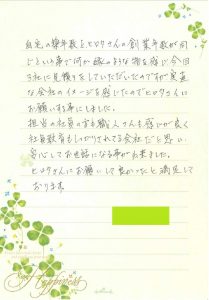 自宅の築年数とヒロタさんの創業年数が同
じという事で何か縁のような物を感じ今回
3社に見積りをしていただいたのですが実直
な会社のイメージを感じたのでヒロタさんに
お願いする事にしました。
担当の社員の方も職人さんも感じが良く
社員教育もしっかりされてる会社だと思い
安心してお世話になる事が出来ました。
ヒロタさんにお願いして良かったと満足して
おります
Happiness